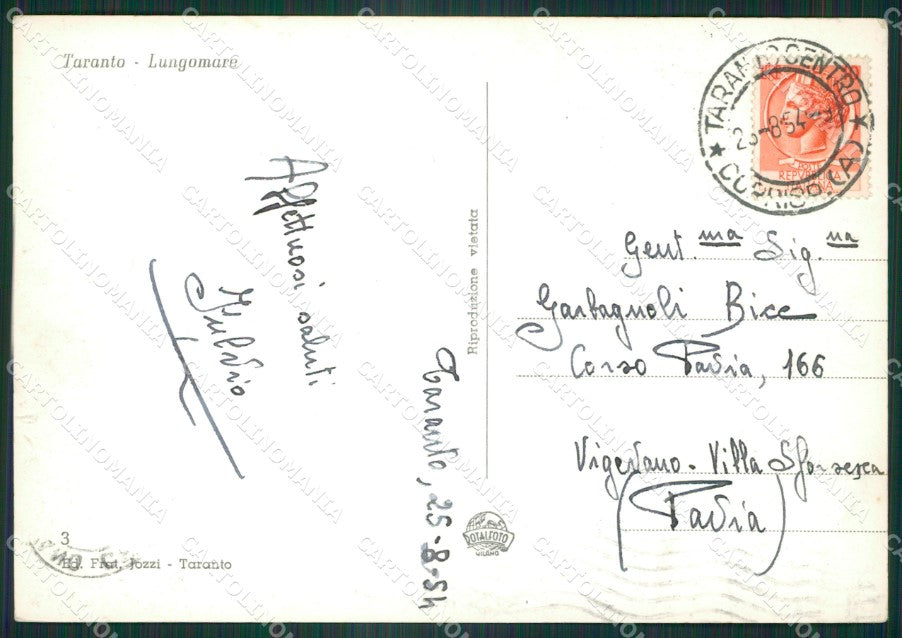 Taranto - Lungomare
Affettuosi saluti
Fulvio
Taranto, 25-8-54
Riproduzione vietata
TARANTO CENTRO
CORRISP. (A)
25-8-54
POSTE
REPVBBLICA
ITALIANA
Gent.ma Sig.na
Garbagnoli Bice
Corso Pavia, 166
Vigevano - Villa Sforzesca
(Pavia)
3
Ed. Frat. Jozzi - Taranto
TOTALFOTO
MILANO
CARTOLINOMANIA